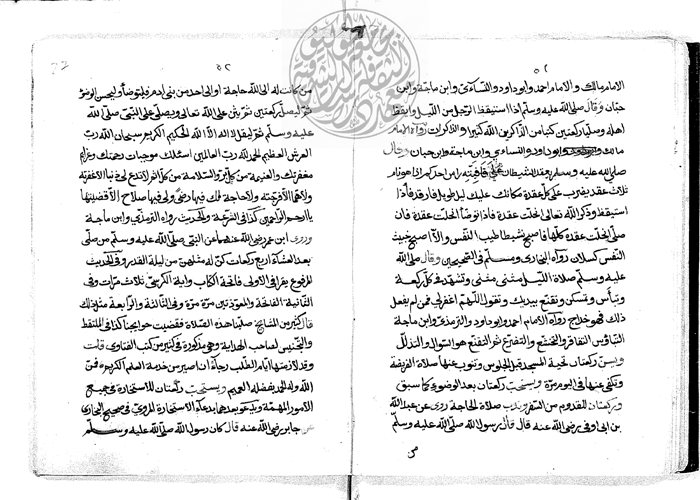 الامام مالك والامام احمد وابوداود والنسائى وابن ماجة وابن
حبان وقال صلى الله عليه وسلم اذا استيقظ الرجل من الليل وايقظ
اهله وصليا ركعتين كتبا من الذاكرين الله كثيرا والذاكرات رواه الامام
مالك وابوداود والنساوى وابن ماجة وابن حبان وقال
صلى الله عليه وسلم يعقد الشيطان على قافية راس احدكم اذا هو نام
ثلاث عقد يضرب على كل عقدة مكانك عليك ليل طويل فارقد فاذا
استيقظ وذكر الله تعالى انحلت عقدة فاذا توضأ انحلت عقدة فان
صلى انحلت عقده كلها فاصبح نشيطا طيب النفس والا اصبح خبيث
النفس كسلان رواه البخارى ومسلم فى الصحيحين وقال صلى الله
عليه وسلم صلاة الليل مثنى مثنى وتشهد فى كل ركعة
وتبأس وتمسكن وتقنع بيديك وتقول اللهم اغفرلى فمن لم يفعل
ذلك فهو خداج رواه الامام احمد وابوداود والترمذى وابن ماجة
التباؤس التفاقر والتخشع والتقنع هو السؤال والتذلل
ويسن ركعتان تحية المسجد قبل الجلوس وتنوب عنها صلاة الفريضة
وتكفى عنها فى اليوم مرة ويستحب ركعتان بعد الوضوء كما سبق
وركعتان للقدوم من السفر وندب صلاة الحاجة روى عن عبد الله
بن ابى اوفى رضى الله عنه قال قال رسول الله صلى الله عليه وسلم
من
من كانت له الى الله حاجة او الى احد من بنى ادم فليتوضأ وليحسن الوضوء
ثم ليصل ركعتين ثم يثن على الله تعالى ويصلى على النبى صلى الله
عليه وسلم ثم ليقل لا اله الا الله الحكيم الكريم سبحان الله رب
العرش العظيم الحمد لله رب العالمين اسئلك موجبات رحمتك وعزايم
مغفرتك والغنيمة من كل بر والسلامة من كل اثم لا تدع لى ذنبا الا غفرته
ولا هما الا فرجته ولا حاجة لك فيها رضى ولى فيها صلاح الا قضيتها
يا ارحم الراحمين كذا فى الشرعة والحديث رواه الترمذى وابن ماجة
وروى ابن عمر رضى الله عنهما عن النبى صلى الله عليه وسلم من صلى
بعد العشاء اربع ركعات كن له مثلهن من ليلة القدر وفى الحديث
المرفوع يقرا فى الاولى فاتحة الكتاب واية الكرسى ثلاث مرات وفى
الثانية الفاتحة والمعوذتين مرة مرة وفى الثالثة والرابعة مثل ذلك
قال كثير من المشايخ صلينا هذه الصلاة فقضيت حوايجنا كذا فى الملتقط
والتجنيس لصاحب الهداية وهى مذكورة فى كثير من كتب الفتاوى قلت
وقد لازمتها ايام الطلب رجاء ان اصير من خدمة العلم الكريم فمن
الله وله الحمد بفضله العميم ويستحب ركعتان للاستخارة فى جميع
الامور المهمة ويدعو بعدهما بدعاء الاستخارة المروى فى صحيح البخارى
عن جابر رضى الله عنه قال كان رسول الله صلى الله عليه وسلم